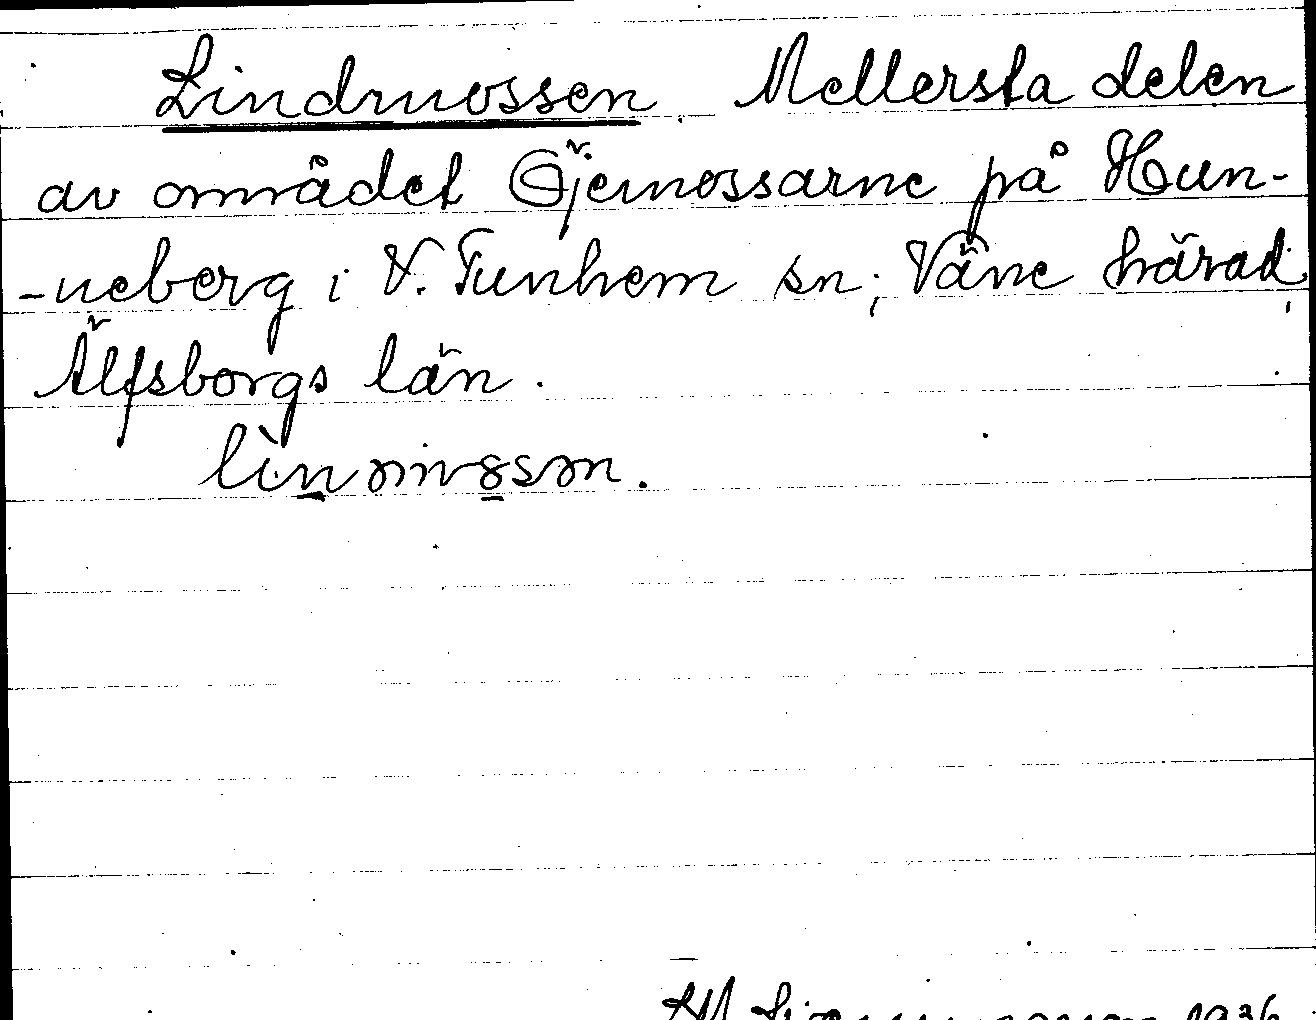 Lindmossen. Mellersta delen
av området Öjemossarne på Hun-
-neberg i V. Tunhem sn; Väne härad,
Älfsborgs län.
1936